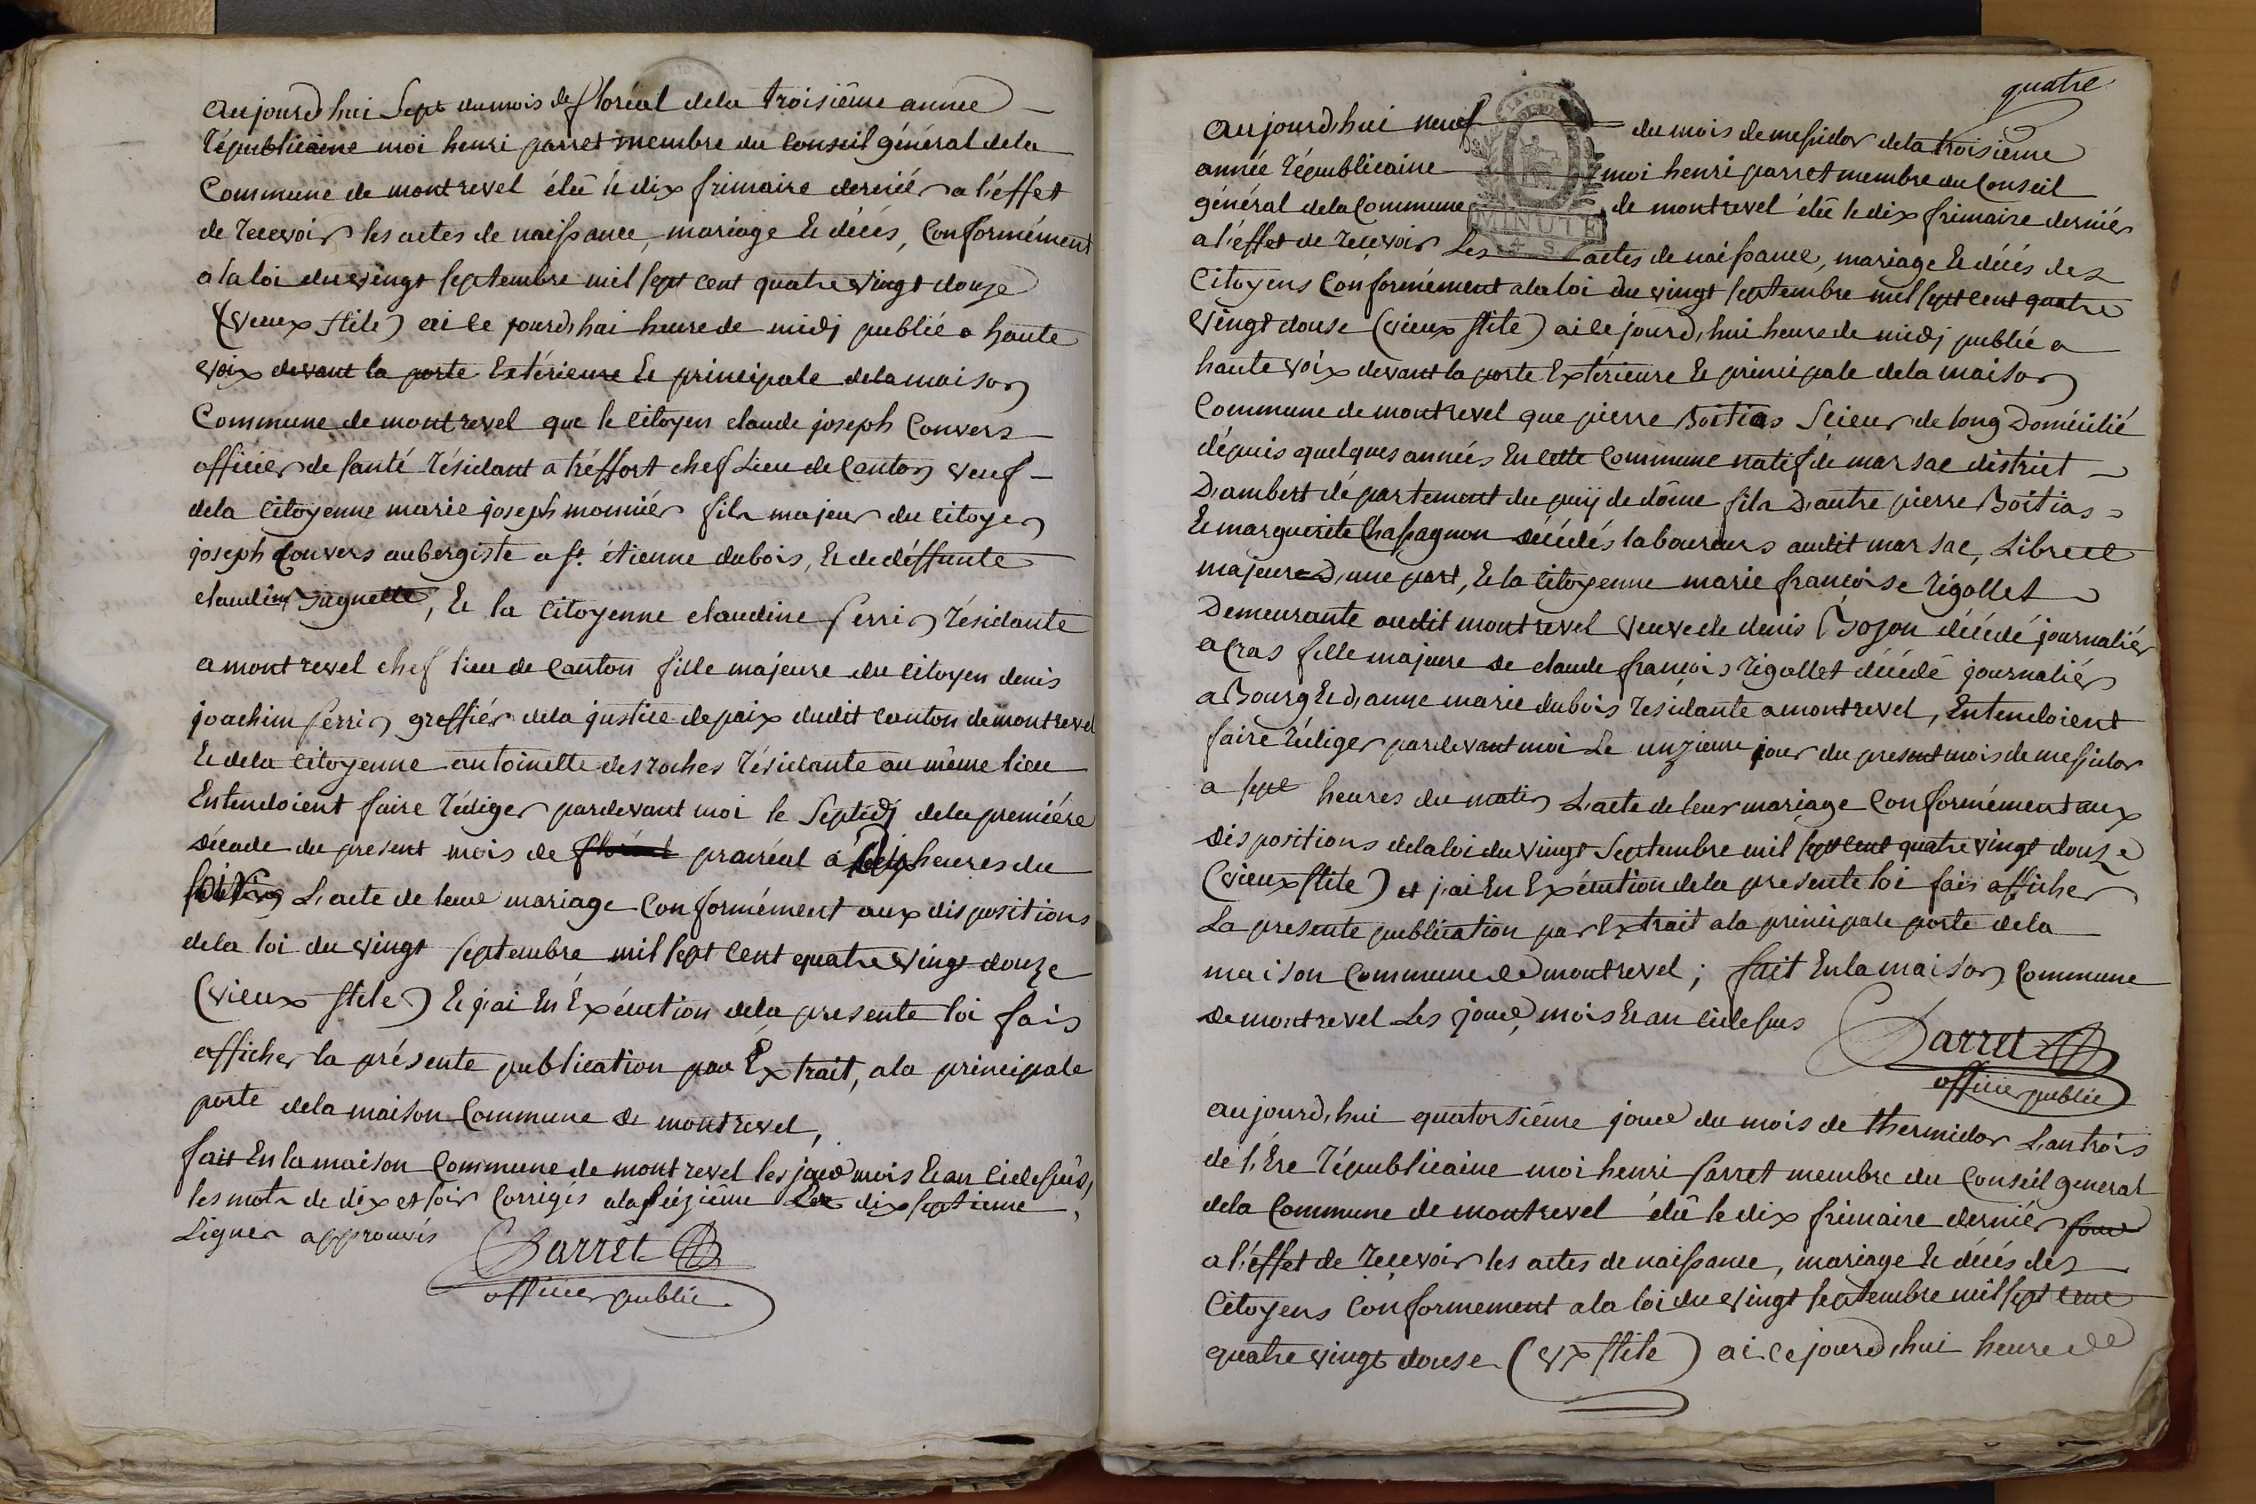 aujourd'hui Sept du mois de floréal dela troisiême année
républicaine moi henri parret membre du Conseil général dela
Commune de montrevel élû le dix frimaire derniér a l'éffet
de recevoir les actes de naissance, mariage & décés, Conformément
a la loi du vingt septembre mil sept cent quatre vingt douze
(vieux stile) ai ce jourd'hui heure de midj publié a haute
voix devant la porte Extérieure & principale dela maison
Commune de montrevel que le Citoyen claude joseph Convers
officier de santé résidant a tréffort chef Lieu de Canton veuf
dela Citoyenne marie joseph monniér fils majeur du Citoyen
joseph Convers aubergiste a st. étienne dubois, & de déffunte
claudine, & la Citoyenne claudine ferrin résidante
a montrevel chef lieu de Canton fille majeure du Citoyen denis
joachim ferrin greffiér dela justice de paix dudit canton de montrevel
& dela Citoyenne antoinette desroches résidante au même lieu
Entendoient faire rédiger pardevant moi le Septidj dela premiére
décade du present mois de floréal prairéal a Dix heures du
soir L'acte de leur mariage Conformément aux dispositions
dela loi du vingt septembre mil sept Cent quatre vingt douze
(vieux stile) & j'ai En Exécution dela presente loi fais
afficher la présente publication par Extrait, ala principale
porte dela maison Commune de montrevel,
fait En la maison Commune de montrevel les jour mois & an Cidessus,
les mots de dix et soir Corrigés ala séizième & dixseptieme
Lignes approuvés
Parret
officier public
quatre
MINUTE
4. S.
aujourd'hui neuf du mois de messidor dela troisième
année républicaine moi henri parret membre du Conseil
général dela Commune de montrevel élû le dix frimaire derniér
a l'éffet de recevoir Les actes de naissance, mariage & décés des
Citoyens Conformément ala loi du vingt septembre mil sept cent quatre
vingt douse (vieux stile) ai ce jourd'hui heure de midj publié a
haute voix devant la porte Extérieure & principale dela maison
Commune de montrevel que pierre Boitias Scieur de long Domicilié
dépuis quelques années En cette Commune natif de marsac district
D'ambert département du puij de dôme fils D'autre pierre Boitias
& marguerite Chassagnon décédés laboureurs audit marsac, Libre et
majeur D'une part, & la Citoyenne marie françoise rigollet
Demeurante audit montrevel veuve de denis Bozon décédé journaliér
a Cras fille majeure de claude françois rigollet décédé journaliér
a Bourg & D'anne marie dubois résidante a montrevel, Entendoient
faire rédiger pardevant moi Le unzieme jour du present mois de messidor
a sept heures du matin L'acte de leur mariage Conformément aux
dispositions dela loi du vingt Septembre mil sept cent quatre vingt douze
(vieux stile) et j'ai En Exécution dela presente loi fais afficher
La presente publication par Extrait ala principale porte dela
maison Commune de montrevel; fait En la maison Commune
de montrevel Les jour, mois & an Cidessus
Parret
officier public
aujourd'hui quatorsième jour du mois de thermidor L'an trois
de l'Ére républicaine moi henri parret membre du Conseil general
dela Commune de montrevel élû le dix frimaire derniér
a l'éffet de recevoir les actes de naissance, mariage & décés des
Citoyens Conformement ala loi du vingt septembre mil sept cent
quatre vingt douse (vx stile) ai ce jourd'hui heure de